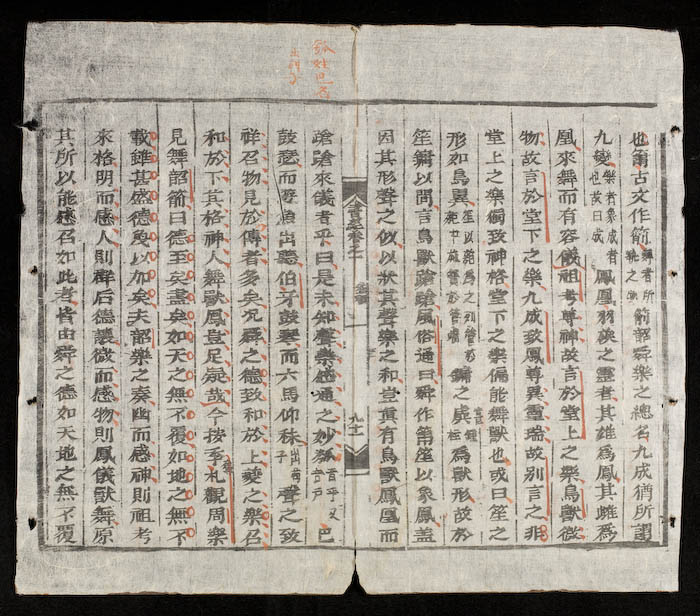 也簫古文作箾舞者所執之物箾韶舜樂之總名九成猶所謂
九變樂者象成者也故曰成鳳凰羽族之靈者其雄為鳳其雌為
凰來舞而有容儀祖考尊神故言於堂上之樂鳥獸微
物故言於堂下之樂九成致鳳尊異靈瑞故別言之非
堂上之樂獨致神格堂下之樂偏能舞獸也或曰笙之
形如鳥翼鏞之虡為獸形故於
笙鏞以間言鳥獸蹌蹌風俗通曰舜作簫笙以象鳳蓋
因其形聲之似以狀其聲樂之和豈真有鳥獸鳳凰而
書經卷之一
九十一
蹌蹌來儀者乎曰是未知聲樂感通之妙瓠巴
鼓瑟而游魚出聽伯牙鼓琴而六馬仰秣聲之致
祥召物見於傳者多矣况舜之德致和於上夔之樂召
和於下其格神人舞獸鳳豈足疑哉今按季札觀周樂
見舞韶箾曰德至矣盡矣如天之無不覆如地之無不
載雖甚盛德蔑以加矣夫韶樂之奏幽而感神則祖考
來格明而感人則群后德讓微而感物則鳳儀獸舞原
其所以能感召如此者皆由舜之德如天地之無不覆